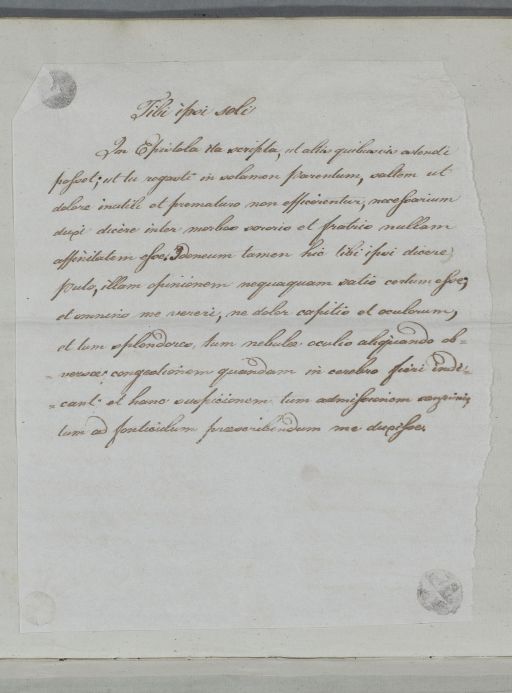 Tibi ipsi soli
In Epistola ita scripta, ut aliis quibusvis ostendi
posset; ut tu rogasti in solamen parentum, saltem ut
dolore inutili et prematuro non afficerentur, necessarium
duxi dicere inter morbos sororis et fratris nullam
affinitatem esse. Idoneum tamen hic tibi ipsi dicere
puto, illam opinionem nequaquam satis certam esse;
et omnino me vereri, ne dolor capitis et oculorum,
et tum splendores, tum nebulae oculis aliquando ob-
-versae; congestionem quandam in cerebro fieri indi-
-cant: et hanc suspicionem tum admissionem sanguinis,
tum ad fonticulum praescribendum me duxisse.